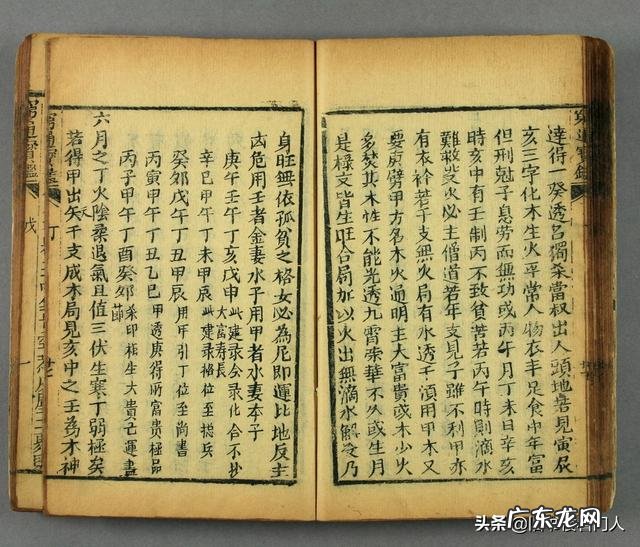 窮通寶鑑
達得一癸透名獨榮當权出人頭地若見寅辰
亥三字化木生火尋常人物衣丰足食中年富
但刑尅子息劳而無功或丙午月丁未日辛亥
時亥中有壬制丙不致貧苦若丙午時則滴水
難救炎火必主僧道若年支見子雖不利甲亦
有衣衿若干支無火局有水透干須用甲木又
要庚劈甲方名木火通明主大富貴或木少火
多焚其木性不能光透九霄榮華不久或生月
是祿支皆生旺合局加以火出無滴水解炎乃
身旺無依孤貧之格女必為尼即運比地反主
凶危用壬者金妻水子用甲者水妻木子
庚午壬午丁亥戊申
此建录合录化合不抄
大富寿長
辛巳甲午丁未甲辰
此建录格位至提兵
癸卯戊午丁丑甲辰
用甲引丁位至尚書
丙寅甲午丁丑乙巳
甲透庚得所富貴極品
丙子甲午丁酉癸卯
杀印相生大貴亡運盡
六月之丁火陰柔退氣且值三伏生寒丁弱極矣
若得甲出矣干支成木局見亥中之壬為木神
窮通寶鑑
丁
窮通寶鑑
戊
一
头条
门人
广东龙网